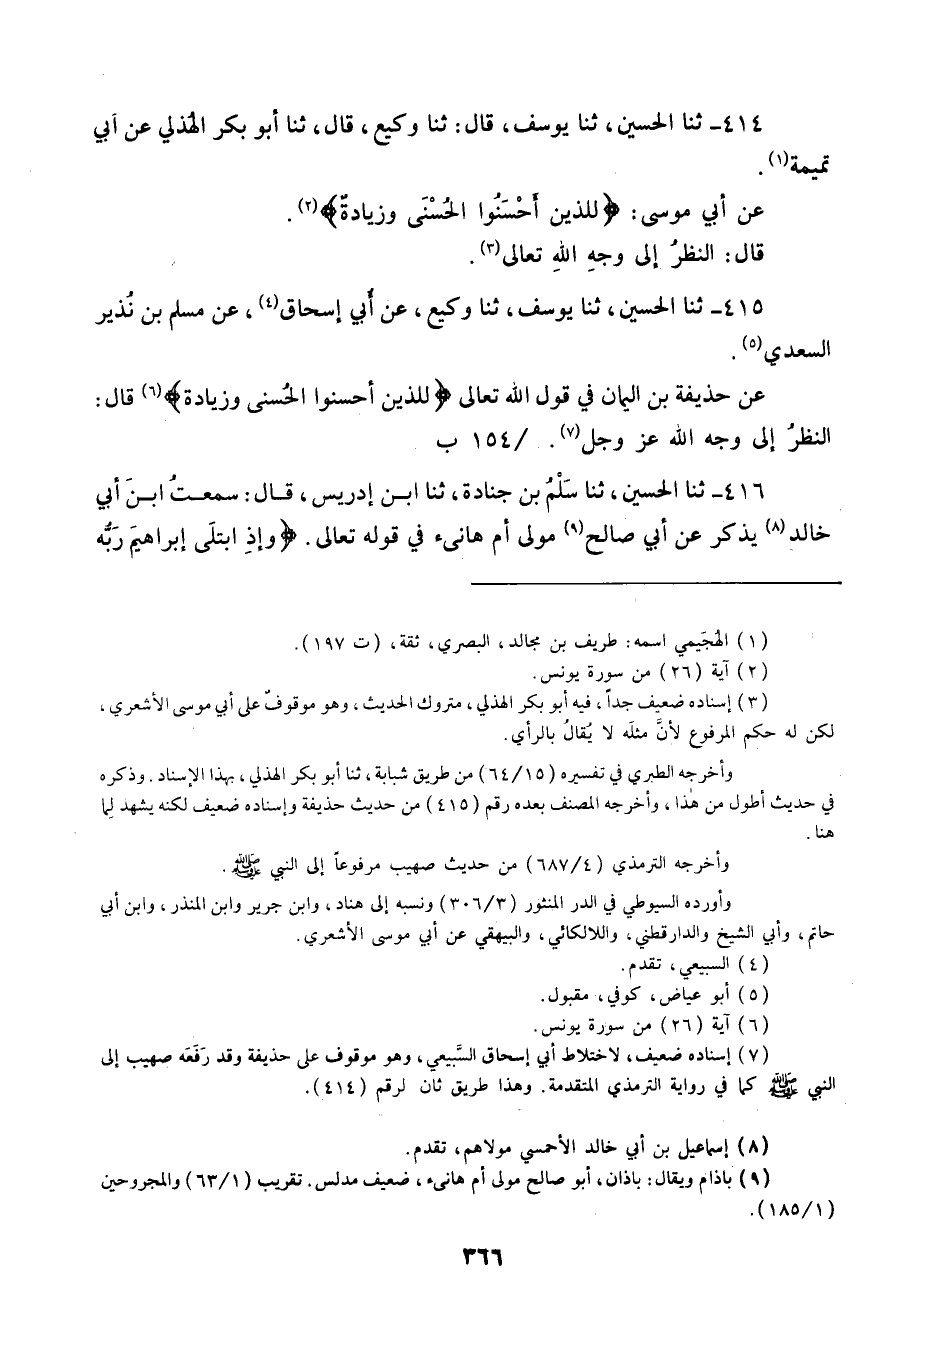 ٤١٤ـ ثنا الحسين، ثنا يوسف، قال: ثنا وكيع، قال، ثنا أبو بكر الهذلي عن أبي
تميمة(١).
عن أبي موسى: ﴿للذين أَحْسَنُوا الحُسْنَى وزيادةٌ﴾(٢).
قال: النظرُ إلى وجهِ اللهِ تعالى(٣).
٤١٥ـ ثنا الحسين، ثنا يوسف، ثنا وكيع، عن أَبي إسحاق(٤)، عن مسلم بن نُذير
السعدي(٥).
عن حذيفة بن اليمان في قول الله تعالى ﴿للذين أحسنوا الحُسنى وزيادة﴾(٦) قال:
النظرُ إلى وجه الله عز وجل(٧). /١٥٤ ب
٤١٦ـ ثنا الحسين، ثنا سَلْمُ بن جنادة، ثنا ابن إدريس، قال: سمعتُ ابنَ أبي
خالد(٨) يذكر عن أبي صالح(٩) مولى أم هانىء في قوله تعالى. ﴿وإذِ ابتلَى إبراهيمَ رَبُّه
(١) الهُجَيمي اسمه: طريف بن مجالد، البصري، ثقة، (ت ١٩٧).
(٢) آية (٢٦) من سورة يونس.
(٣) إسناده ضعيف جداً، فيه أبو بكر الهذلي، متروك الحديث، وهو موقوفٌ على أبي موسى الأشعري،
لكن له حكم المرفوع لأنَّ مثلَه لا يُقالُ بالرأي.
وأخرجه الطبري في تفسيره (٦٤/١٥) من طريق شبابة، ثنا أبو بكر الهذلي، بهذا الإسناد. وذكره
في حديث أطول من هذا، وأخرجه المصنف بعده رقم (٤١٥) من حديث حذيفة وإسناده ضعيف لكنه يشهد لِما
هنا.
وأخرجه الترمذي (٦٨٧/٤) من حديث صهيب مرفوعاً إلى النبي ﷺ.
وأورده السيوطي في الدر المنثور (٣٠٦/٣) ونسبه إلى هناد، وابن جرير وابن المنذر، وابن أبي
حاتم، وأبي الشيخ والدارقطني، واللالكائي، والبيهقي عن أبي موسى الأشعري.
(٤) السبيعي، تقدم.
(٥) أبو عياض، كوفي، مقبول.
(٦) آية (٢٦) من سورة يونس.
(٧) إسناده ضعيف، لاختلاط أبي إسحاق السَّبيعي، وهو موقوف على حذيفة وقد رَفَعَه صهيب إلى
النبي ﷺ كما في رواية الترمذي المتقدمة. وهذا طريق ثان لرقم (٤١٤).
(٨) إسماعيل بن أبي خالد الأحمسي مولاهم، تقدم.
(٩) باذام ويقال: باذان، أبو صالح مولى أم هانىء، ضعيف مدلس. تقريب (٦٣/١) والمجروحين
(١٨٥/١).
٣٦٦